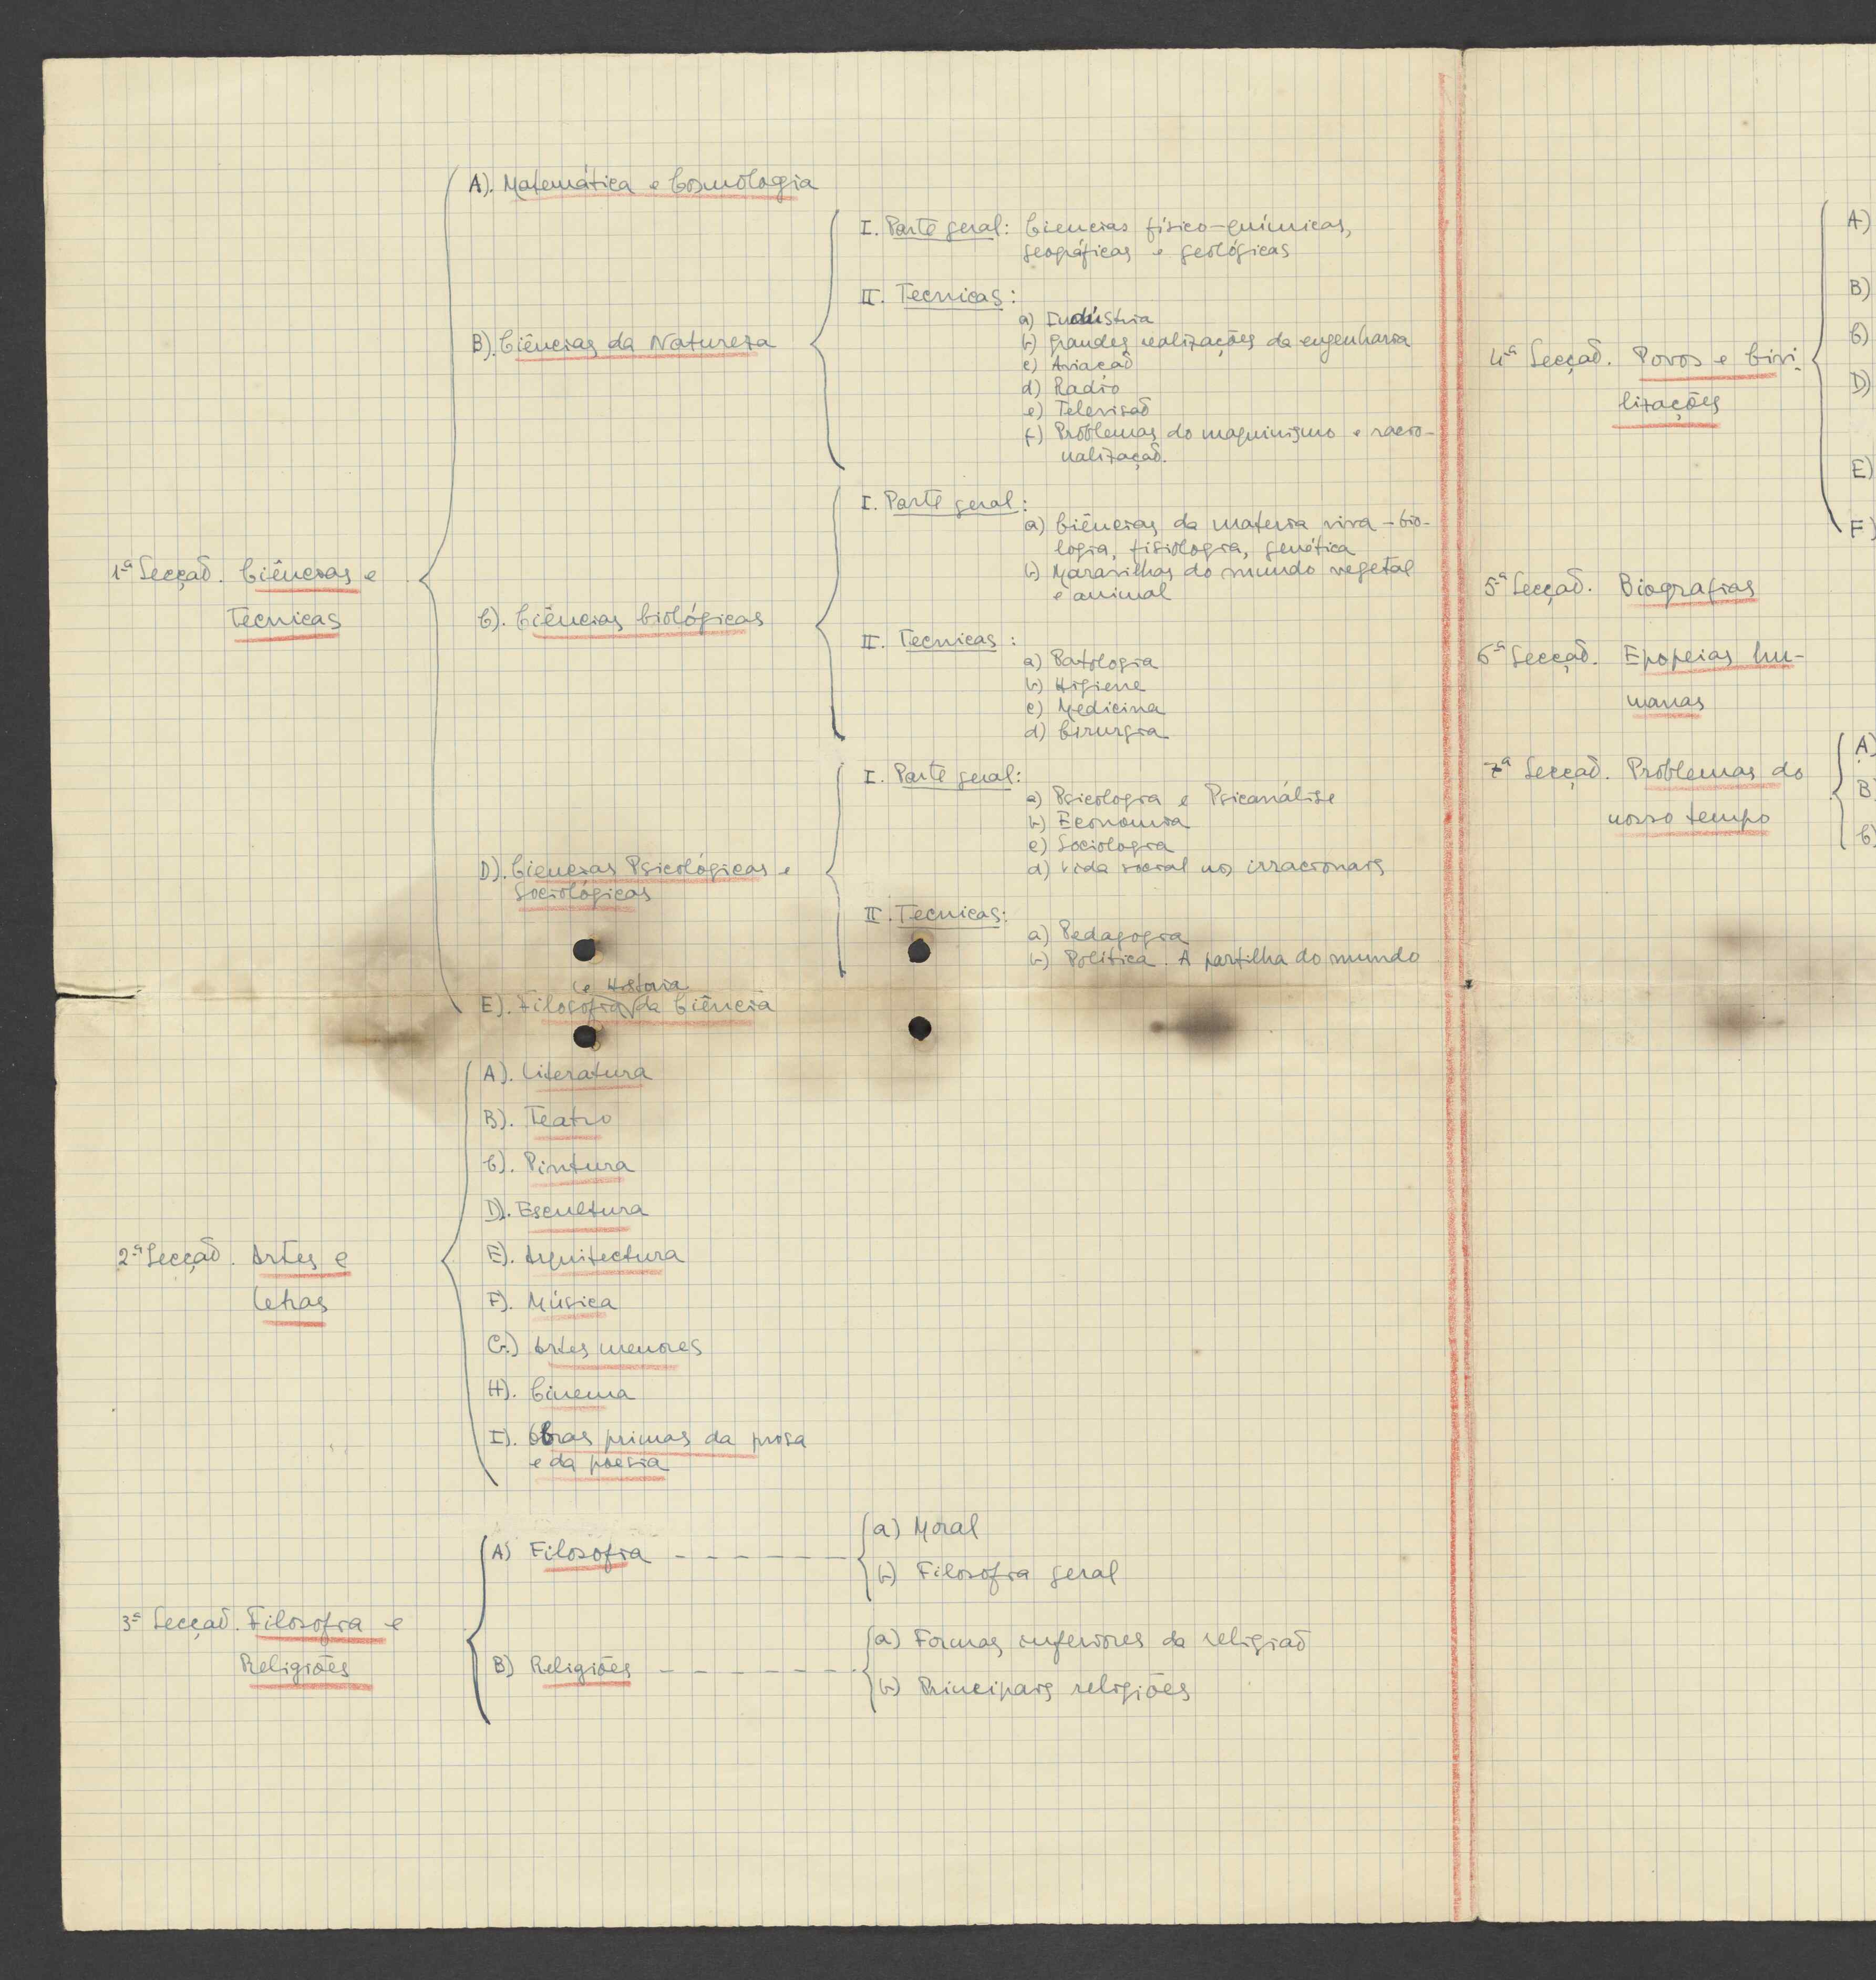 1ª Secção. Ciências e
Tecnicas
A). Matemática e Cosmologia
B). Ciências da Natureza
I. Parte geral: Ciencias físico-químicas,
geográficas e geológicas
II. Tecnicas:
a) Indústria
b) Grandes realizações da engenharia
c) Aviação
d) Radio
e) Televisão
f) Problemas do maquinismo e racio-
nalização.
C). Ciências biológicas
I. Parte geral:
a) Ciências da materia viva – bio-
logia, fisiologia, genética
b) Maravilhas do mundo vegetal
e animal
II. Tecnicas:
a) Patologia
b) Higiene
c) Medicina
d) Cirurgia
D). Ciencias Psicológicas e
Sociológicas
I. Parte geral:
a) Psicologia e Psicanálise
b) Economia
c) Sociologia
d) Vida social nos irracionais
II. Tecnicas:
a) Pedagogia
b) Política. A partilha do mundo
e Historia
E). Filosofia da Ciência
2ª Secção. Artes e
Letras
A). Literatura
B). Teatro
C). Pintura
D). Escultura
E). Arquitectura
F). Música
G.) Artes menores
H). Cinema
I). Obras primas da prosa
e da poesia
3ª Secção. Filosofia e
Religiões
A) Filosofia
a) Moral
b) Filosofia geral
B) Religiões
a) Formas inferiores da religião
b) Principais religiões
4ª Secção. Povos e Civi-
lizações
A)
B)
C)
D)
E)
F)
5ª Secção. Biografias
6ª Secção. Epopeias hu-
manas
7ª Secção. Problemas do
nosso tempo
A)
B
C)